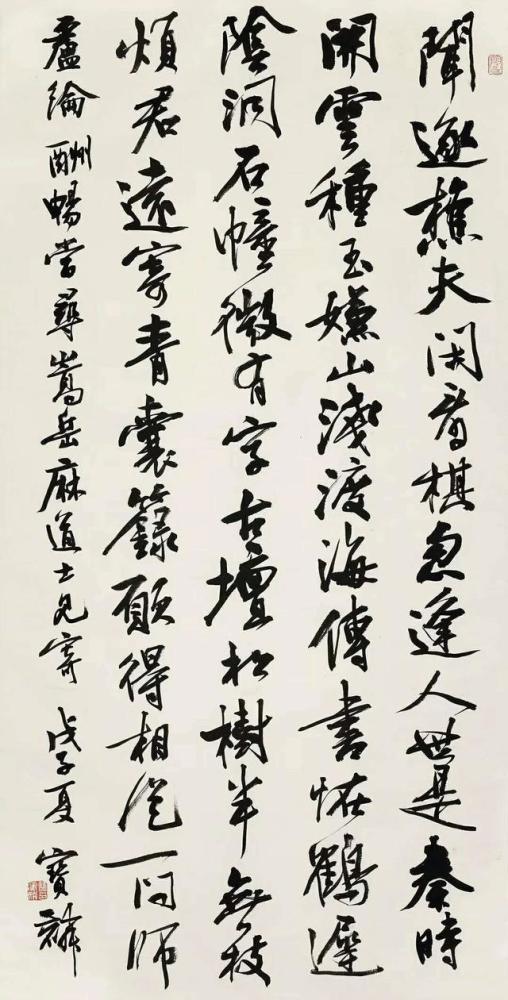 聞逐樵夫闲看棋忽逢人世是秦時
開雲種玉嫌山淺渡海傳書怪鶴遲
陰洞石幢微有字古壇松樹半無枝
煩君遠寄青囊籙願得相從一问师
盧綸酬暢當尋嵩岳麻道士見寄 戊子夏 寶麟